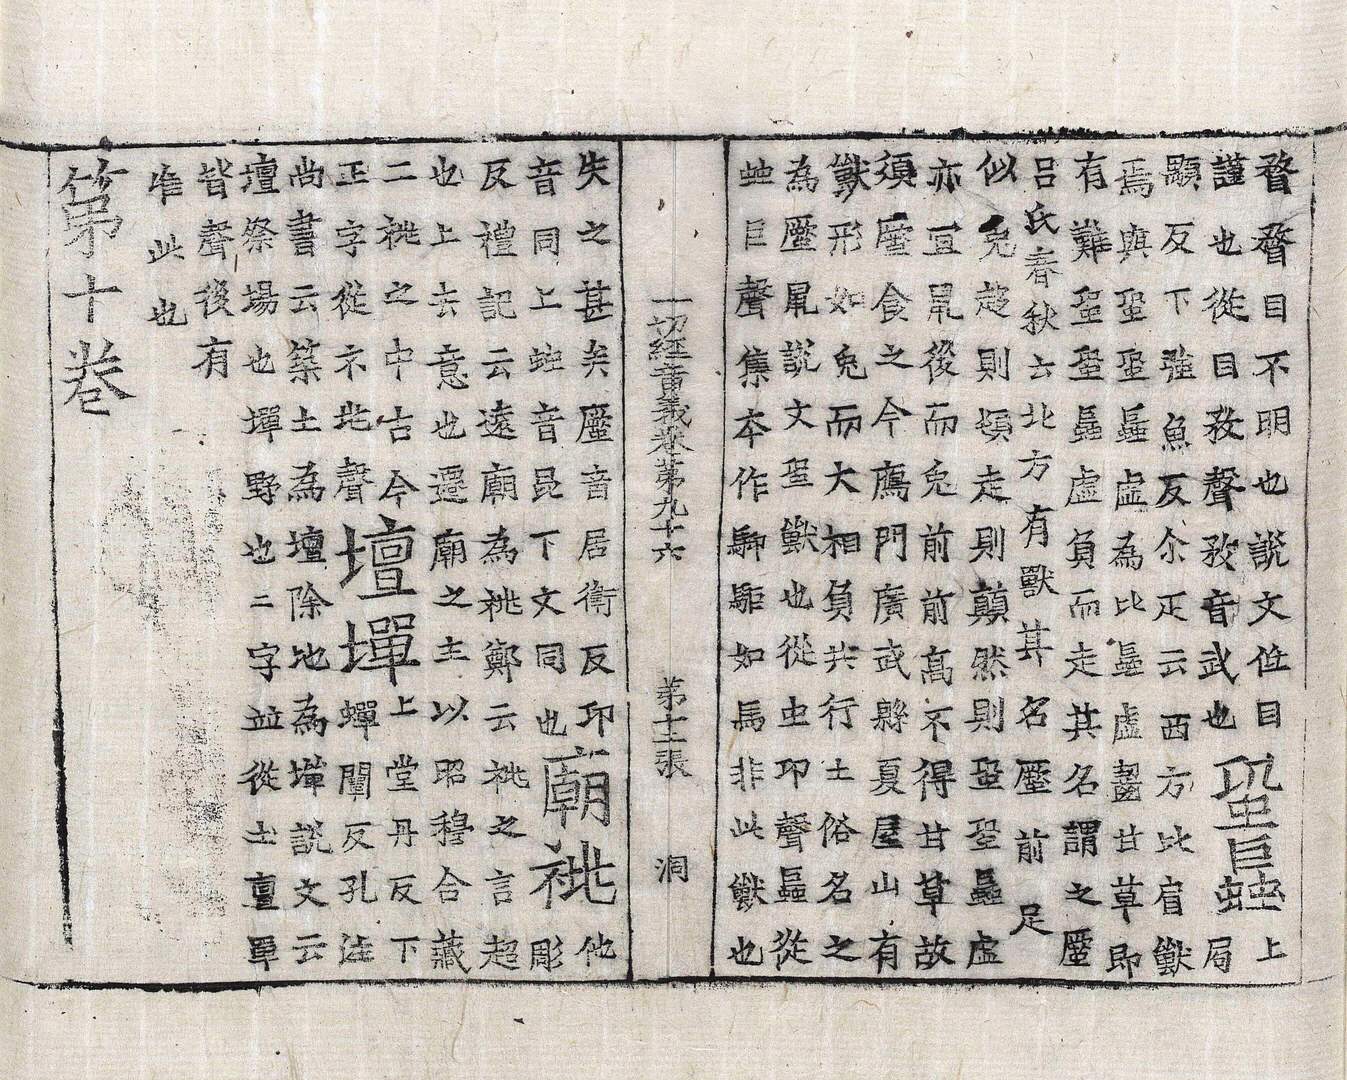 瞀瞀目不明也説文位目
謹也從目敄聲敄音武也
蛩𧕦上
局
顒反下强魚反尒疋云西方比肩獸
焉與蛩蛩𧕦虛為比𧕦虛齧甘草即
有難蛩蛩𧕦虛負而走其名謂之蟨
吕氏春秋云北方有獸其名蟨前足
似兔趍則頓走則顛然則蛩蛩𧕦虛
亦宜鼠後而兔前前高不得甘草故
須蟨食之今鴈門廣武縣夏屋山有
獸形如兔而大相負共行土俗名之
為蟨鼠説文蛩獸也從虫卭聲𧕦從
䖵巨聲集本作駏如馬非此獸也
一切經音義卷第九十六 第十二張 洞
失之甚矣蟨音居衛反卭
音同上䖵音昆下文同也
廟祧他
彫
反禮記云遠廟為祧鄭云祧之言超
也上去意也遷廟之主以昭穆合藏
二祧之中古今
正字從示兆聲
壇墠上堂丹反下
蟬闡反孔注
尚書云築土為壇除地為墠説文云
壇祭場也墠野也二字並從土亶單
皆聲後有
准此也
第十卷